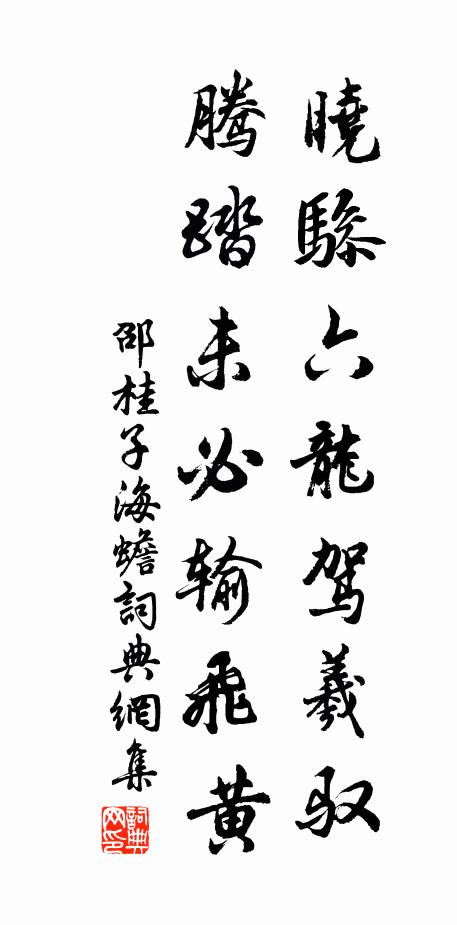 曉驂六龍駕羲馭
騰踏未必輸飛黃
邵桂子海蟾詞典網集
詞典網印